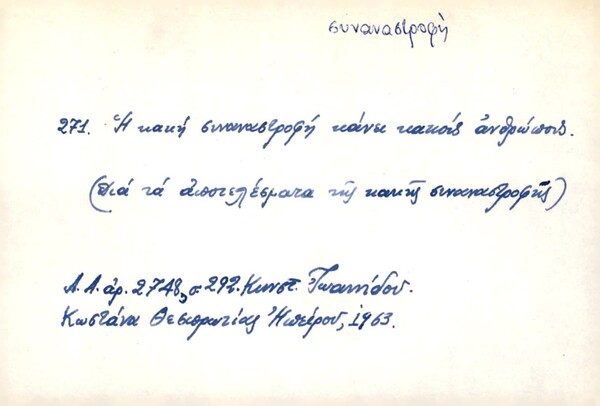 συναναστροφή
271. Ἡ κακή συναναστροφή κάνει κακούς ἀνθρώπους.
(Διά τά ἀποτελέσματα τῆς κακῆς συναναστροφῆς)
Λ.Λ. ἀρ. 2748, σ. 292. Κωνστ. Ἰωαννίδου.
Κωστάνα Θεσπρωτίας Ἠπείρου, 1963.